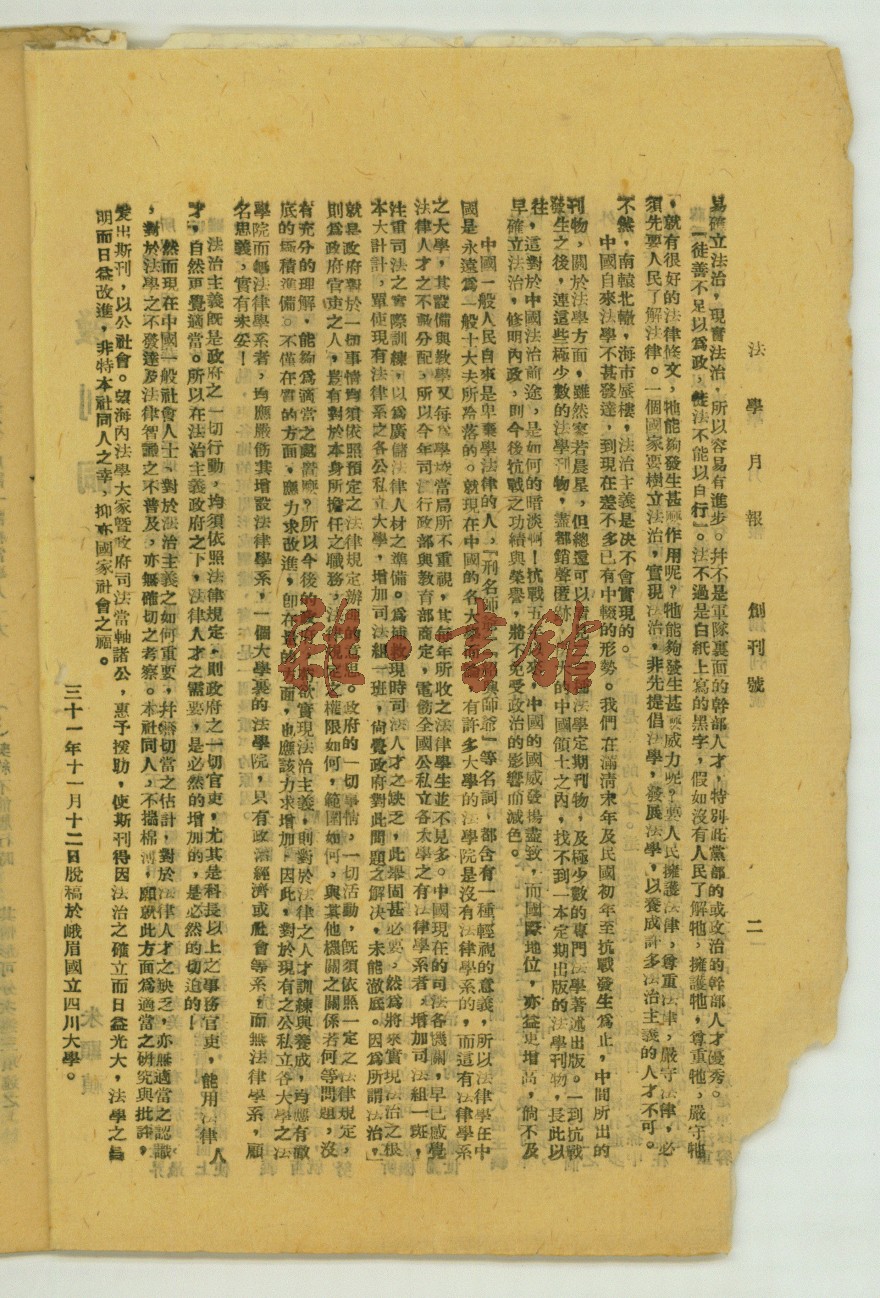 法學月報 創刊號 二
易確立法治,現實法治,所以容易有進步。并不是軍隊裏面的幹部人才,特別此黨部的或政治的幹部人才優秀。
「徒善不足以爲政,徒法不能以自行」。法不過是白紙上寫的黑字,假如沒有人民了解牠,擁護牠,尊重牠,嚴守牠
,就有很好的法律條文,牠能夠發生甚麼作用呢?牠能夠發生甚麼威力呢?要人民擁護法律,尊重法律,嚴守法律,必
須先要人民了解法律。一個國家要樹立法治,實現法治,非先提倡法學,發展法學,以養成許多法治主義的人才不可。
不然,南轅北轍,海市蜃樓,法治主義是決不會實現的。
中國自來法學不甚發達,到現在差不多已有中輟的形勢。我們在滿清末年及民國初年至抗戰發生爲止,中間所出的
刊物,關於法學方面,雖然寥若晨星,但總還可以看見法學定期刊物,及極少數的專門法學著述出版。一到抗戰
發生之後,連這些極少數的法學刊物,盡都銷聲匿跡,大的中國領土之內,找不到一本定期出版的法學刊物,長此以
往,這對於中國法治前途,是如何的暗淡啊!抗戰五年以來,中國的國威發揚盡致,而國際地位,亦益更增高,倘不及
早確立法治,修明內政,則今後抗戰之功績與榮譽,將不免受政治的影響而減色。
中國一般人民自來是卑棄學法律的人,「刑名師爺」「紹興師爺」等名詞,都含有一種輕視的意義,所以法律學在中
國是永遠爲一般士大夫所冷落的。就現在中國的各大學而論,有許多大學的法學院是沒有法律學系的,而這有法律學系
之大學,其設備與教學又每爲學校當局所不重視,其每年所收之法律學生並不見多。中國現在的司法各機關,早已感覺
法律人才之不敷分配,所以今年司法行政部與教育部商定,電飭全國公私立各大學之有法律學系者,增加司法組一班,
注重司法之實際訓練,以爲廣儲法律人材之準備。爲補救現時司法人才之缺乏,此舉固甚必要,然爲將來實現法治之根
本大計計,單使現有法律系之各公私立大學,增加司法組一班,尙覺政府對此問題之解決,未能澈底。因爲所謂法治,
就是政府對於一切事情均須依照預定之法律規定辦理的意思。政府的一切事情,一切活動,旣須依照一定之法律規定,
則凡爲政府官吏之人,豈有對於本身所擔任之職務,法律規定之權限如何,範圍如何,與其他機關之關係者何等問題,沒
有充分的理解,能夠爲適當之處置麼?所以今後的政府欲實現法治主義,則對於法律之人才訓練與養成,均應有徹
底的極積準備。不僅在質的方面,應力求改進,卽在量的方面,也應該力求增加。因此,對於現有之公私立各大學之法
學院而無法律學系者,均應嚴飭其增設法律學系,一個大學裏的法學院,只有政治經濟或社會等系,而無法律學系,顧
名思義,實有未妥!
法治主義旣是政府之一切行動,均須依照法律規定,則政府之一切官吏,尤其是科長以上之事務官吏,能用法律人
才,自然更覺適當。所以在法治主義政府之下,法律人才之需要,是必然的增加的,是必然的切迫的!
然而現在中國一般社會人士,對於法治主義之如何重要,幷無切當之估計,對於法律人才之缺乏,亦無適當之認識
,對於法學之不發達及法律智識之不普及,亦無確切之考察。本社同人,不揣棉薄,願就此方面爲適當之研究與批評,
爰出斯刊,以公社會。望海內法學大家暨政府司法當軸諸公,惠予援助,使斯刊得因法治之確立而日益光大,法學之昌
明而日益改進,非特本社同人之幸,抑亦國家社會之福。
三十一年十一月十二日脫稿於峨眉國立四川大學。
雜·書館